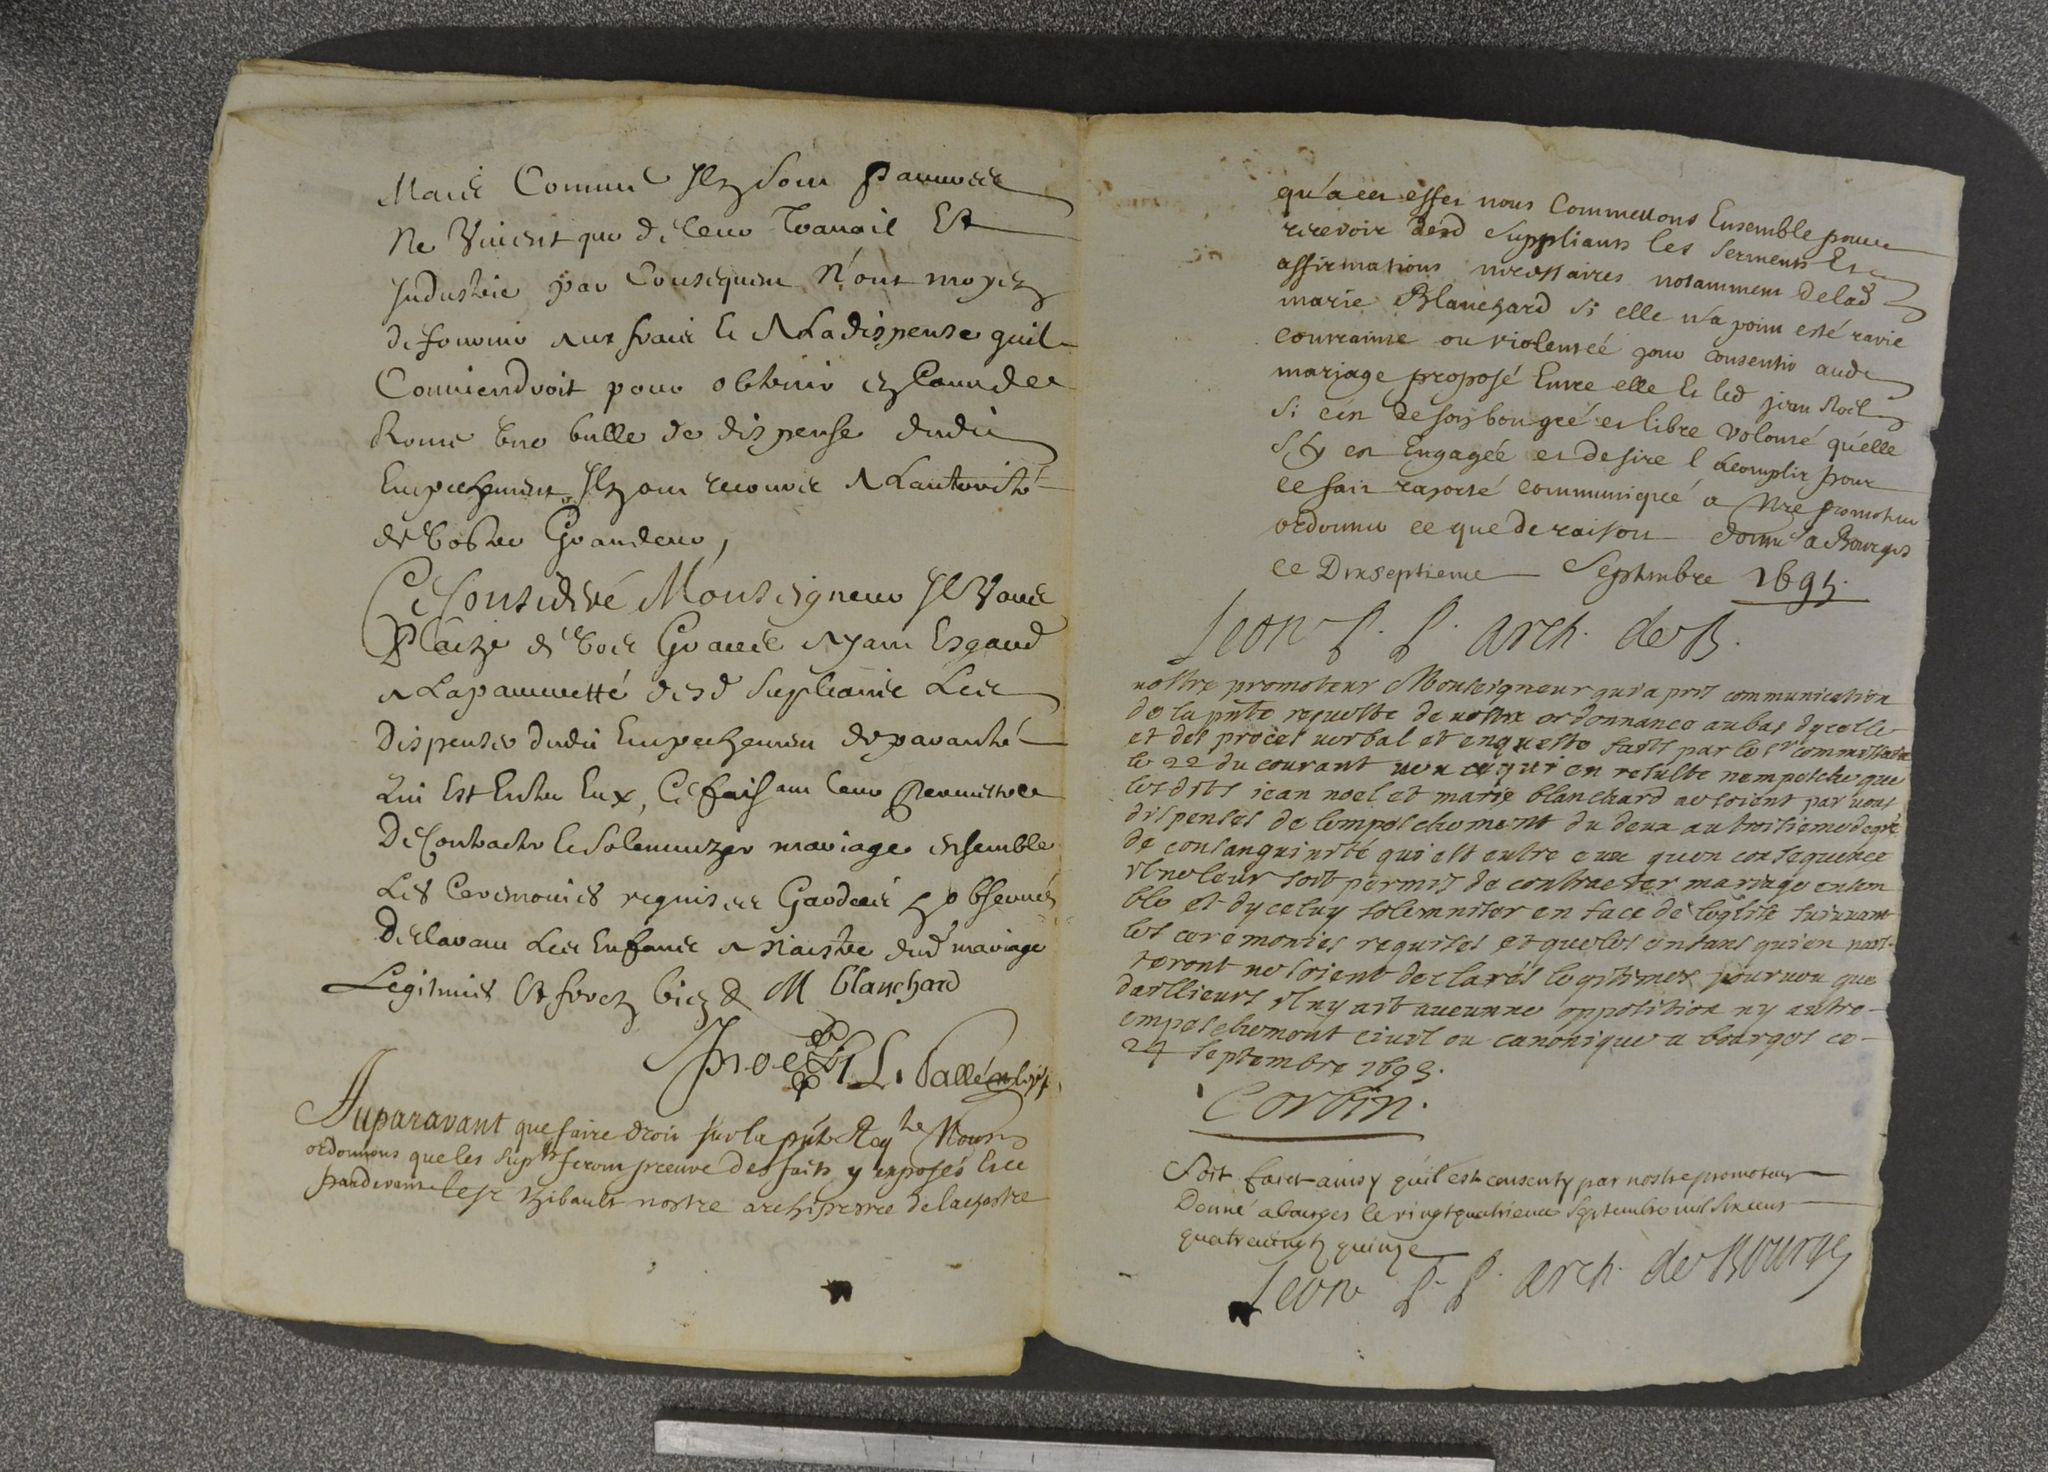 Mais Comme Ilz sont pauvres
Ne Vivent que de leur Travail Et
Industrie par Consequent N'ont moyen
de fournir aux frais de la dispense quil
Conviendroit pour obtenir en Cour de
Rome Une bulle de dispense dudit
Empechement Ilz ont recours a Lautorité
de Vostre Grandeur,
Ce Consideré Monseigneur Il Vous
Plaize de vos Graces ayant Esgard
a La pauvretté desd supliants Les
dispenser dudit Empechement de paranté
qui Est Entre Eux, Ce faisant leur permettre
De Contracter et solemnizer mariage ensemble
Les Ceremonies requises Gardees et observées
Declarant Les Enfants a Naistre dud mariage
Legitimes Et ferez bien & M blanchard
Jnoel L. Pallé
Auparavant que faire droit sur la pnte Reqte Nous
ordonnons que les supts feront preuve des faits y exposés Et ce
pardevant le sr Thibault nostre archiprestre de la chastre
qu'a cet effet nous Commettons Ensemble pour
recevoir desd suppliants les serments Et
affirmations necessaires notamment de lad
marie Blanchard si elle n'a point esté ravie
contrainte ou violentée pour consentir aud
mariage proposé Entre elle et led jean Noel
si c'est de son bon gré et libre volonté qu'elle
s'y est Engagée et desire l'acomplir pour
ce fait raporté communiqué a Nre promoteur
ordonner ce que de raison donné a Bourges
ce Dixseptieme Septembre 1695.
Leon P. P. arch. de B.
nostre promoteur Monseigneur qui a pris communication
de la pnte requeste de vostre ordonnance au bas dycelle
et des proces verbal et enqueste faits par le sr commissaire
le 22 du courant veu ce qui en resulte nempesche que
lesdits jean noel et marie blanchard ne soient par vous
dispensés de lempeschement du deux au troisieme degré
de consanguinité qui est entre eux quen consequence
il ne leur soit permis de contracter mariage ensem
ble et dyceluy solemniser en face de leglise suivant
les ceremonies requises et que les enfans qui en nais-
teront ne soient declarés legitimes pourveu que
daillieurs il ny ait aucunne opposition ny autre
empeschement civil ou canonique a bourges ce
24 septembre 1695.
Corbin.
Soit faict ainsy qu'il est consenty par nostre promoteur
Donné a bourges le vingtquatrieme Septembre mil six cens
quatrevingtz quinze
Leon P. P. arch. de Bourges